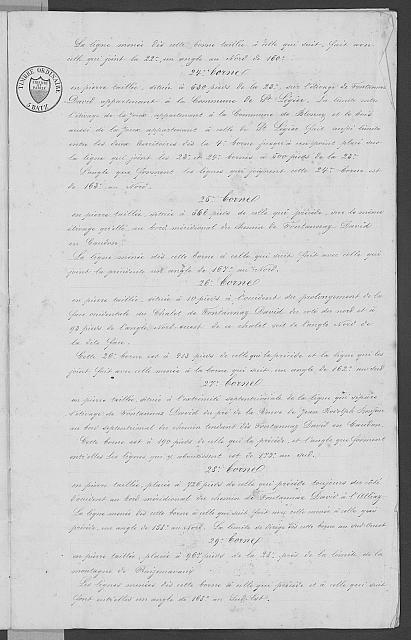 La ligne menée dès cette borne taillée, à celle qui suit, fait avec
celle qui joint la 22e, un angle au Nord de 160°.
24e Borne
en pierre taillée, située à 630 pieds de la 23e, sur l'étivage de Fontannaz
David appartenant à la Commune de St Légier. La limite entre
l'étivage de la Joux appartenant à la Commune de Blonay et le bois
aussi de la Joux appartenant à celle de St Légier fait angle limite
entre les deux territoires dès la 4e borne jusqu'à un point placé sur
la ligne qui joint les 23e et 24e bornes à 500 pieds de la 23e
L'angle que forment les lignes qui joignent cette 24e borne est
de 163° au Nord.
25e Borne
en pierre taillée, située à 366 pieds de celle qui précède, sur le même
étivage qu'elle, au bord méridional du chemin de Fontannaz David
en
La ligne menée dès cette borne à celle qui suit fait avec celle qui
joint la précédente un angle de 167° au Nord.
26e Borne
en pierre taillée, située à 10 pieds à l'occident du prolongement de la
face occidentale du Chalet de Fontannaz David du côté du nord et à
93 pieds de l'angle Nord-ouest de ce chalet soit de l'angle Nord de
la dite face.
Cette 26e borne est à 253 pieds de celle qui la précède et la ligne qui les
joint fait avec celle menée à la borne qui suit un angle de 162° au Sud
27e Borne
en pierre taillée, située à l'extrémité septentrionale de la ligne qui sépare
l'étivage de Fontannaz David du pré de la de Jean Rodolph
au bord septentrional du chemin tendant dès Fontannaz David en
Cette borne est à 192 pieds de celle qui la précède, et l'angle que forment
entr'elles les lignes qui y aboutissent est de 173° au Sud.
28e Borne
en pierre taillée, placée à 726 pieds de celle qui précède toujours du côté
d'occident au bord méridional du chemin de Fontannaz David à l'Alliaz
La ligne menée dès cette borne à celle qui suit fait avec celle menée à celle qui
précède, un angle de 155° au Nord. La limite se dirige dès cette borne au Sud-Ouest
29e Borne
en pierre taillée, placée à 967 pieds de la 28e, près de la limite de la
montagne de
Les lignes menées dès cette borne à celle qui précède et à celle qui suit
font entr'elles un angle de 165° au Sud-Est.
TIMBRE ORDINAIRE
5 BATZ